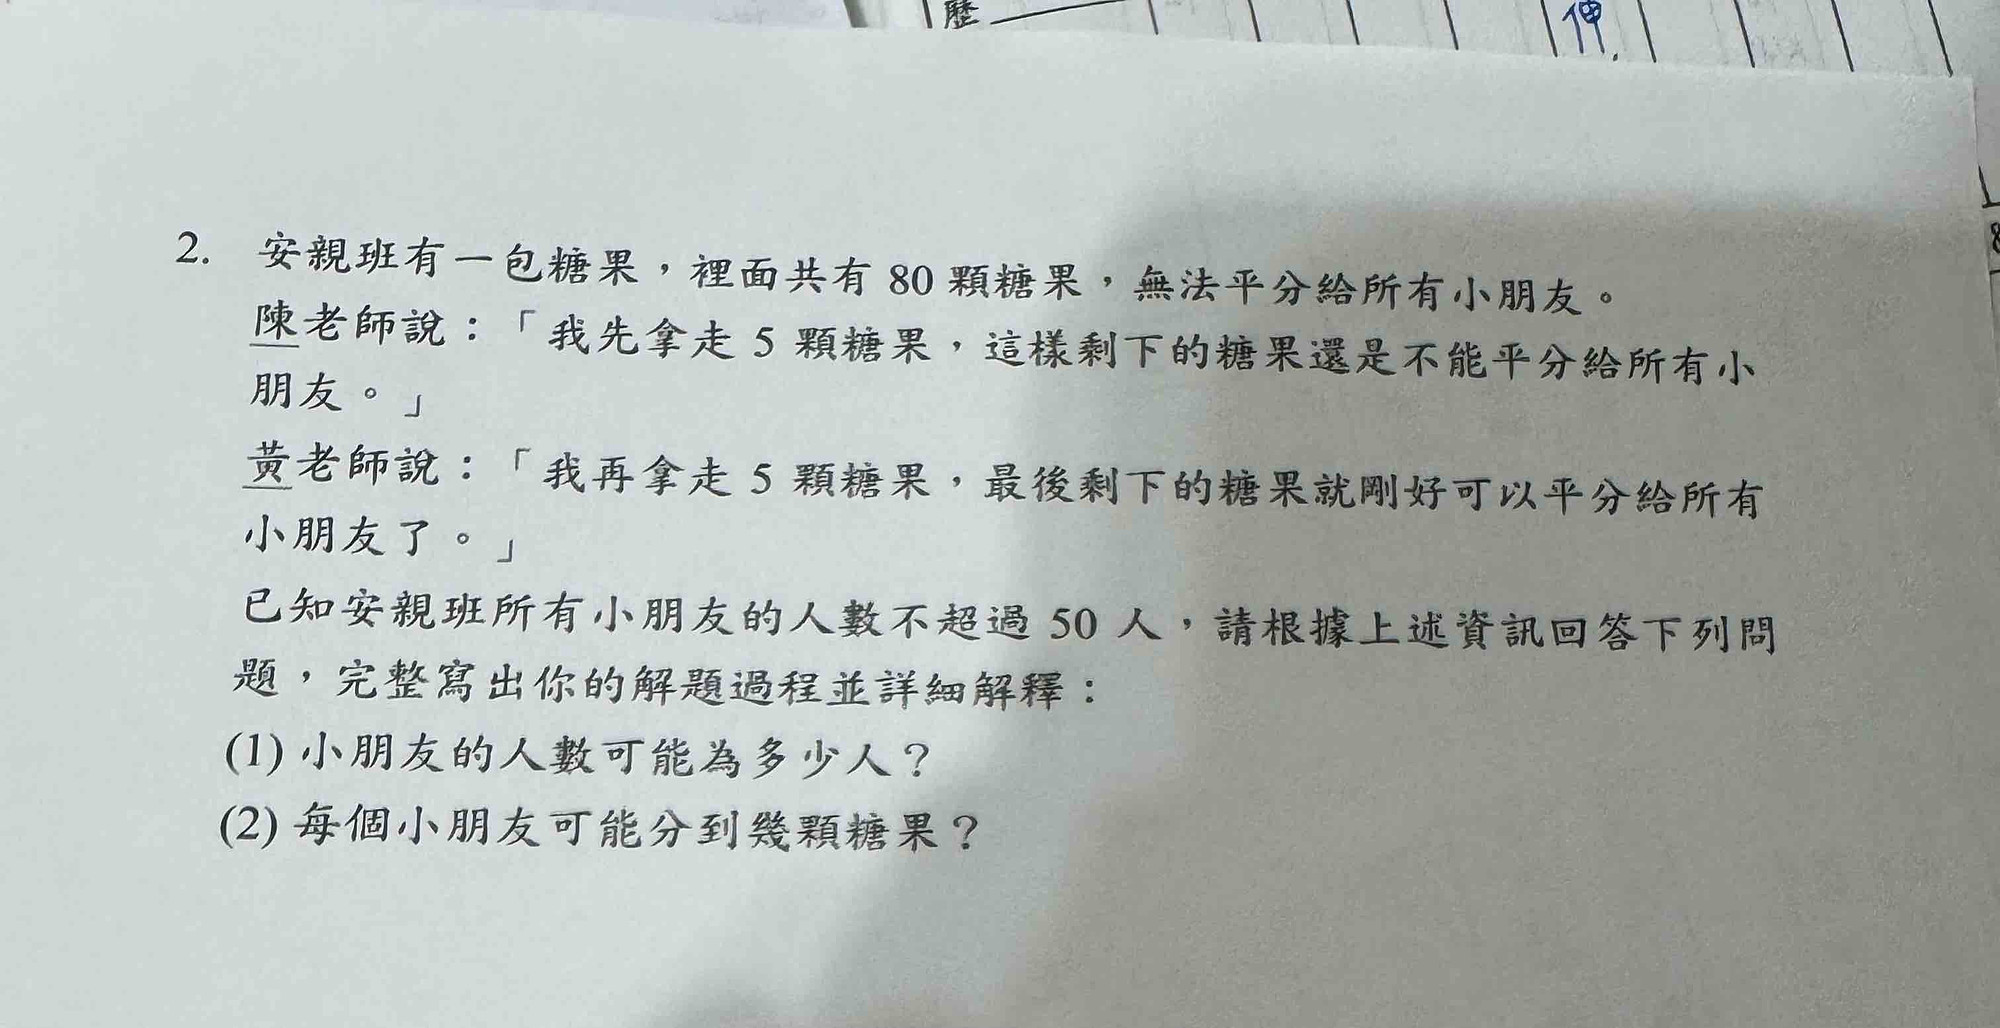 歷
伸
2. 安親班有一包糖果，裡面共有 80 顆糖果，無法平分給所有小朋友。
陳老師說：「我先拿走 5 顆糖果，這樣剩下的糖果還是不能平分給所有小
朋友。」
黃老師說：「我再拿走 5 顆糖果，最後剩下的糖果就剛好可以平分給所有
小朋友了。」
已知安親班所有小朋友的人數不超過 50 人，請根據上述資訊回答下列問
題，完整寫出你的解題過程並詳細解釋：
(1) 小朋友的人數可能為多少人？
(2) 每個小朋友可能分到幾顆糖果？